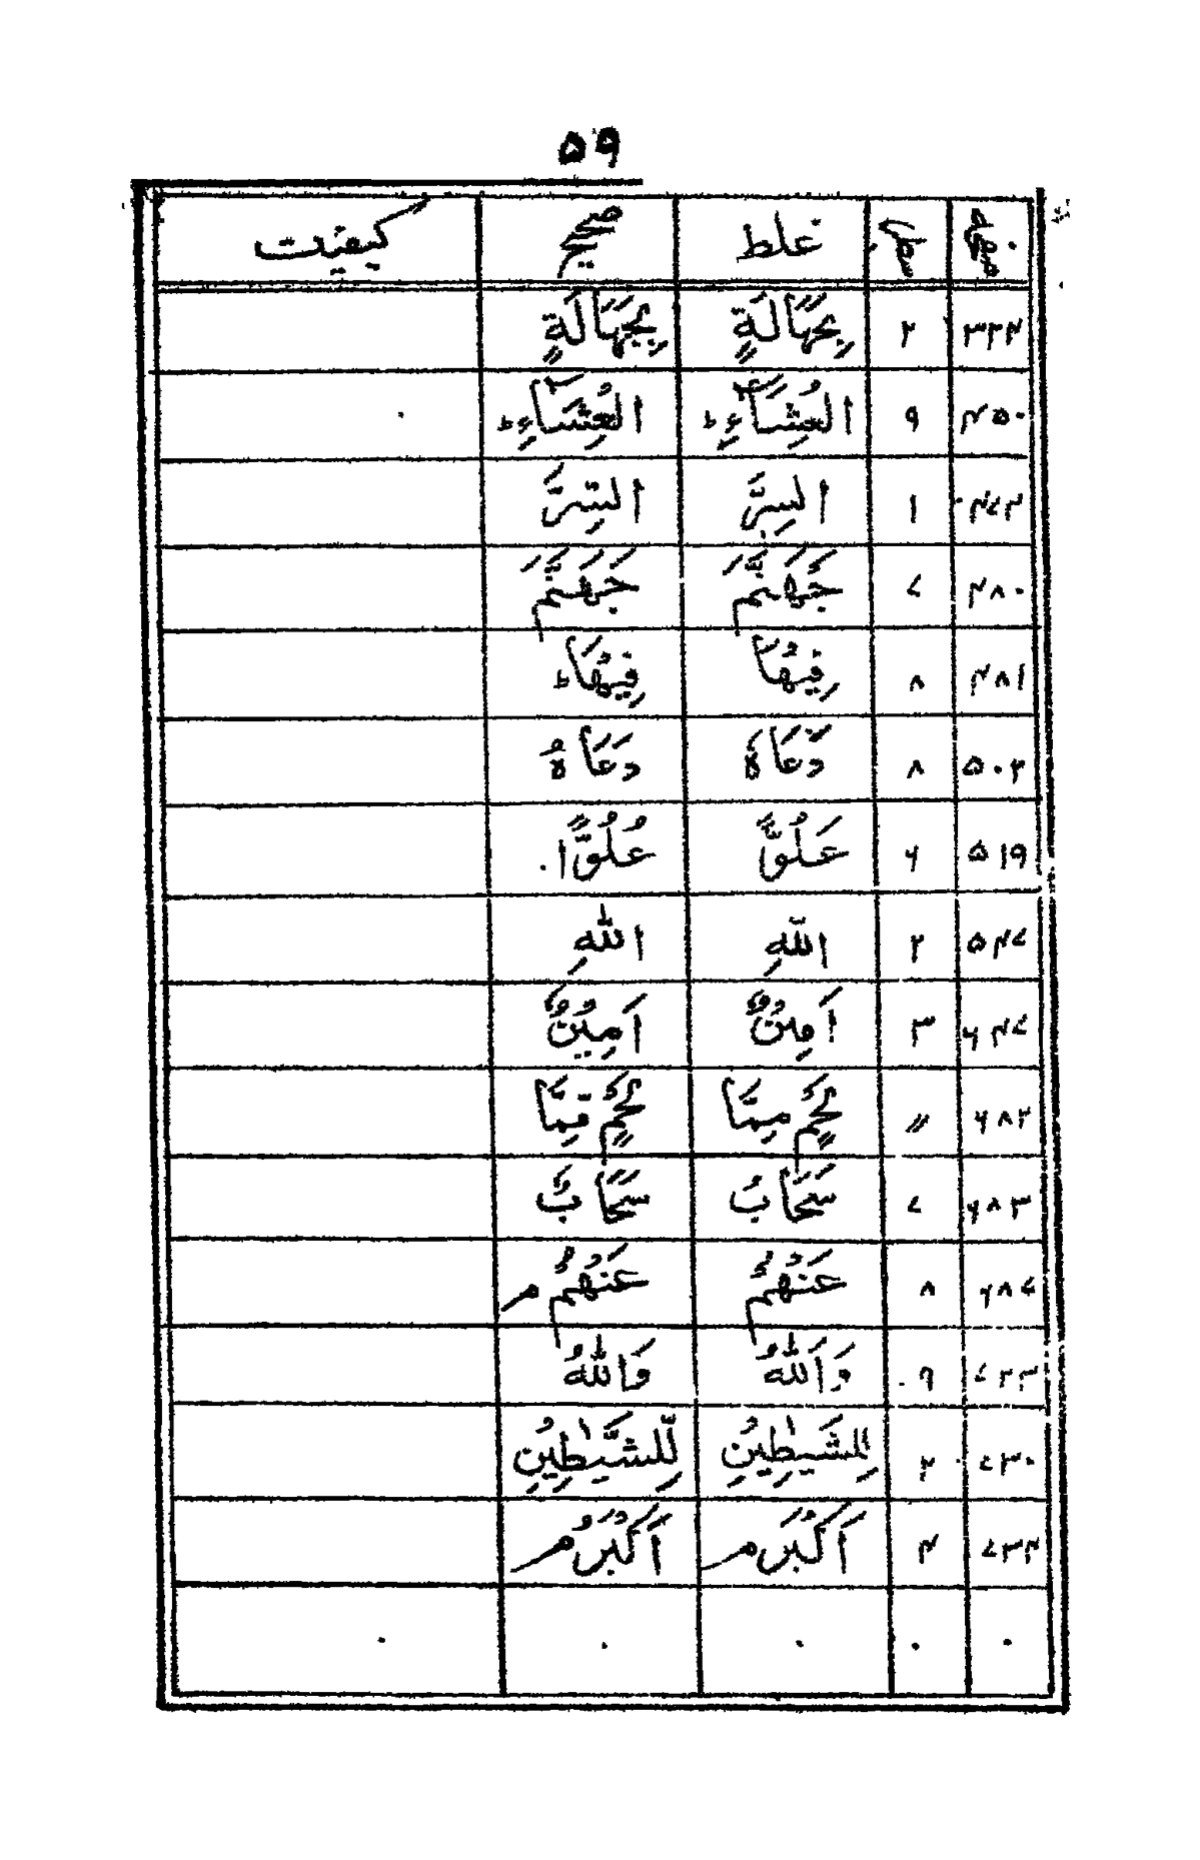 ۵۹
صفحہ سطر غلط صحیح کیفیت
۳۳۴ ۲ بِجَهَالَةٍ بِجَهَالَةٍ
۴۵۰ ۹ الْعِشَآءِ ؕ الْعِشَآءِ ؕ
۴۷۲ ۱ السِرَّ السِّرَّ
۴۸۰ ۷ جَهَنَّمَ جَهَنَّمَ
۴۸۱ ۸ فِيْهَا فِيْهَا ؕ
۵۰۲ ۸ دَّعَاهُ دَعَاهُ
۵۱۹ ۶ عَلُوًّا عُلُوًّا
۵۴۷ ۲ اللّهِ اللّٰهِ
۶۴۷ ۳ اَمِنٌ اَمِيْنٌ
۶۸۲ 〃 كُمْ مِمَّا كُمْ مِّمَّا
۶۸۳ ۷ سَحَابُ سَحَابٌ
۶۸۷ ۸ عَنْهُمْ عَنْهُمْ م
۷۲۳ ۹ وَاَللّٰهُ وَاللّٰهُ
۷۳۰ ۲ لِلشَيٰطِيْنِ لِّلشَّيٰطِيْنِ
۷۳۴ ۴ اَكْبَرَ م اَكْبَرُ م